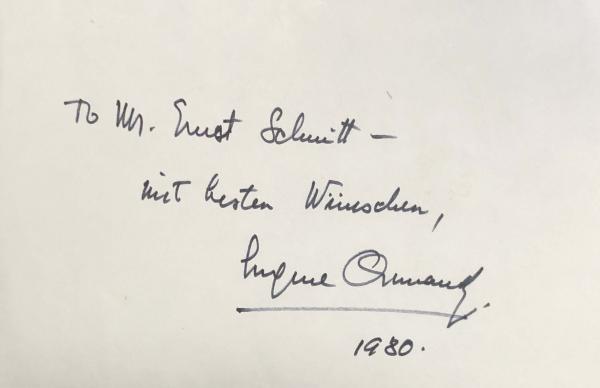 To Mr. Ernst Schmitt –
mit besten Wünschen,
Eugene Ormandy.
1980.